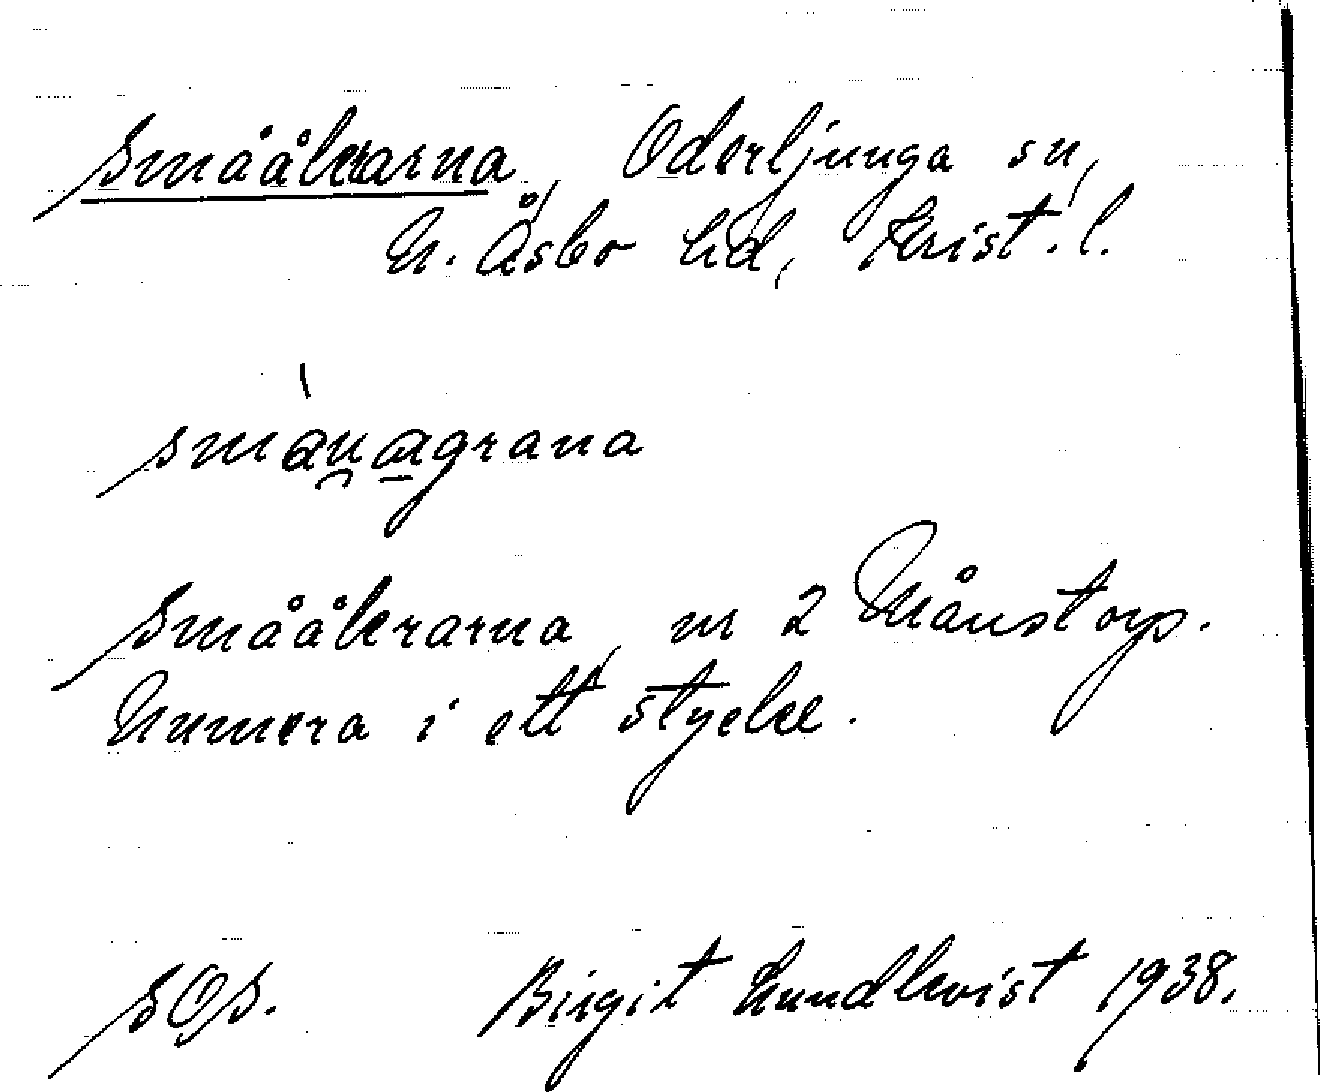 Småålerarna, Oderljunga sn,
N. Åsbo hd, Krist. l.
smànagrana
Smååkrarna, nr 2 Månstorp.
Numera i ett stycke.
SOS. Birgit Lundkvist 1938.